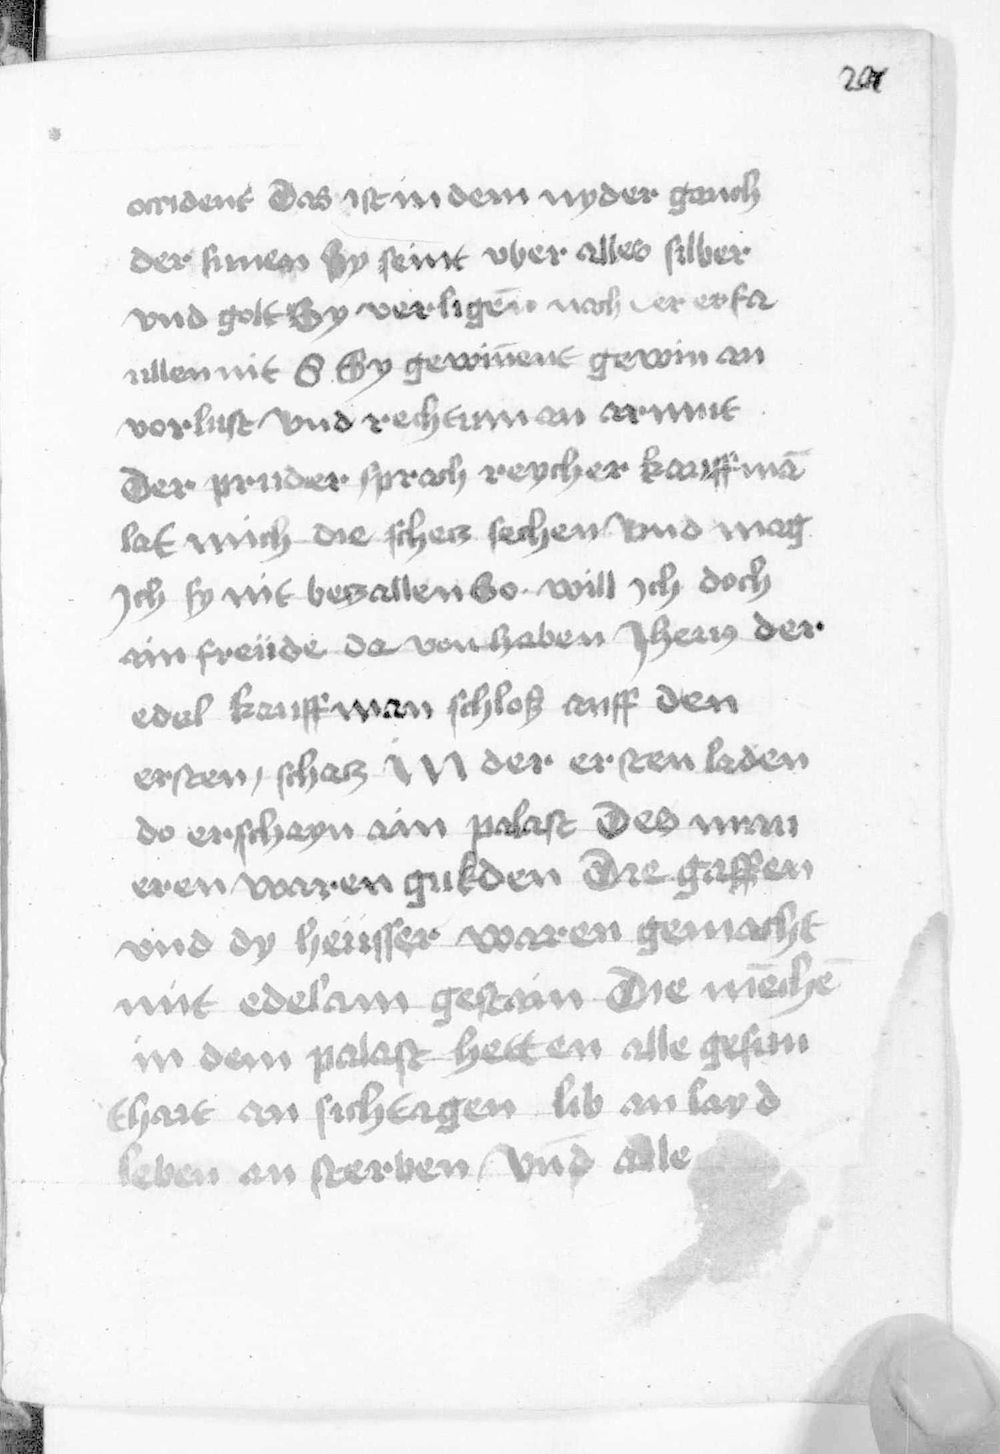 occident Das ist in dem nyder gench
der sunen Sy seint vber alles silber
vnd golt Sy verligen̄ noch er erfa
ullen nit S Sy gewin̄ent gewin an
vorlust Vnd rechtum an armut
Der pruder sprach reycher kauffmā
lat mich die schecz sechen Vnd mag
Jch sy nit beczallen So will ich doch
ain freüde da von haben Jhesus der
edel kauffman schloß auff den
ersten schacz IN der ersten laden
do erschayn ain palast Des mau
eren waren gulden Die gassen
vnd dy heüsser waren gemacht
mit edelam gestain Die mēschē
in dem palast hetten alle gesun
thait an sichtagen lib an layd
leben an sterben Vnd alle